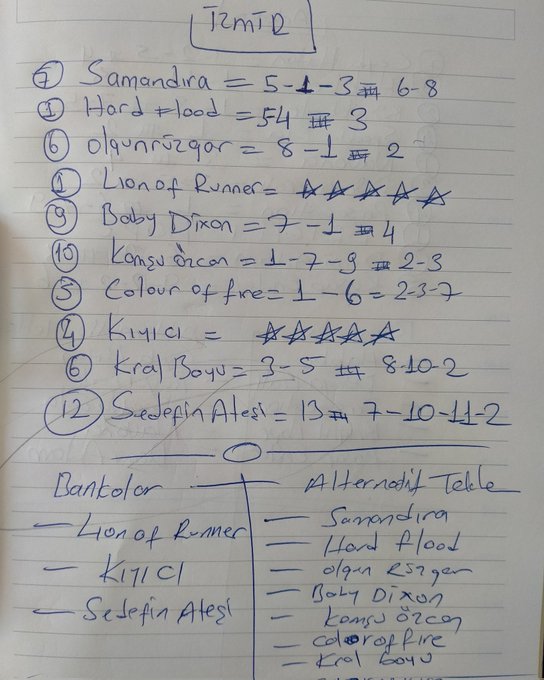 İZMİR
7 Samandıra = 5-1-3 = 6-8
1 Hard Flood = 54 = 3
6 olgunrüzgar = 8-1 = 2
1 Lion of Runner = ☆☆☆☆☆
9 Baby Dixon = 7-1 = 4
10 Komşu Özcan = 1-7-9 = 2-3
5 Colour of fire = 1-6 = 2-3-7
4 Kıyıcı = ☆☆☆☆☆
6 Kral Boyu = 3-5 = 8-10-2
12 Sedefin Ateşi = 13 = 7-10-11-2
Bankolar
- Lion of Runner
- Kıyıcı
- Sedefin Ateşi
Alternatif Tekle
- Samandıra
- Hard flood
- olgun Rüzgar
- Baby Dixon
- komşu özcan
- color of fire
- Kral boyu